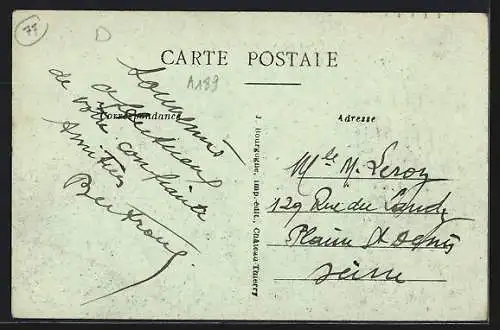 77
D
CARTE POSTALE
A189
Correspondance
Adresse
Souvenirs
affectueux
de votre confiante
Amitiés
J. Bourgogne, imp.-édit., Château-Thierry
Mlle M. Leroy
129 Rue du Landy
Plaine St Denis
Seine